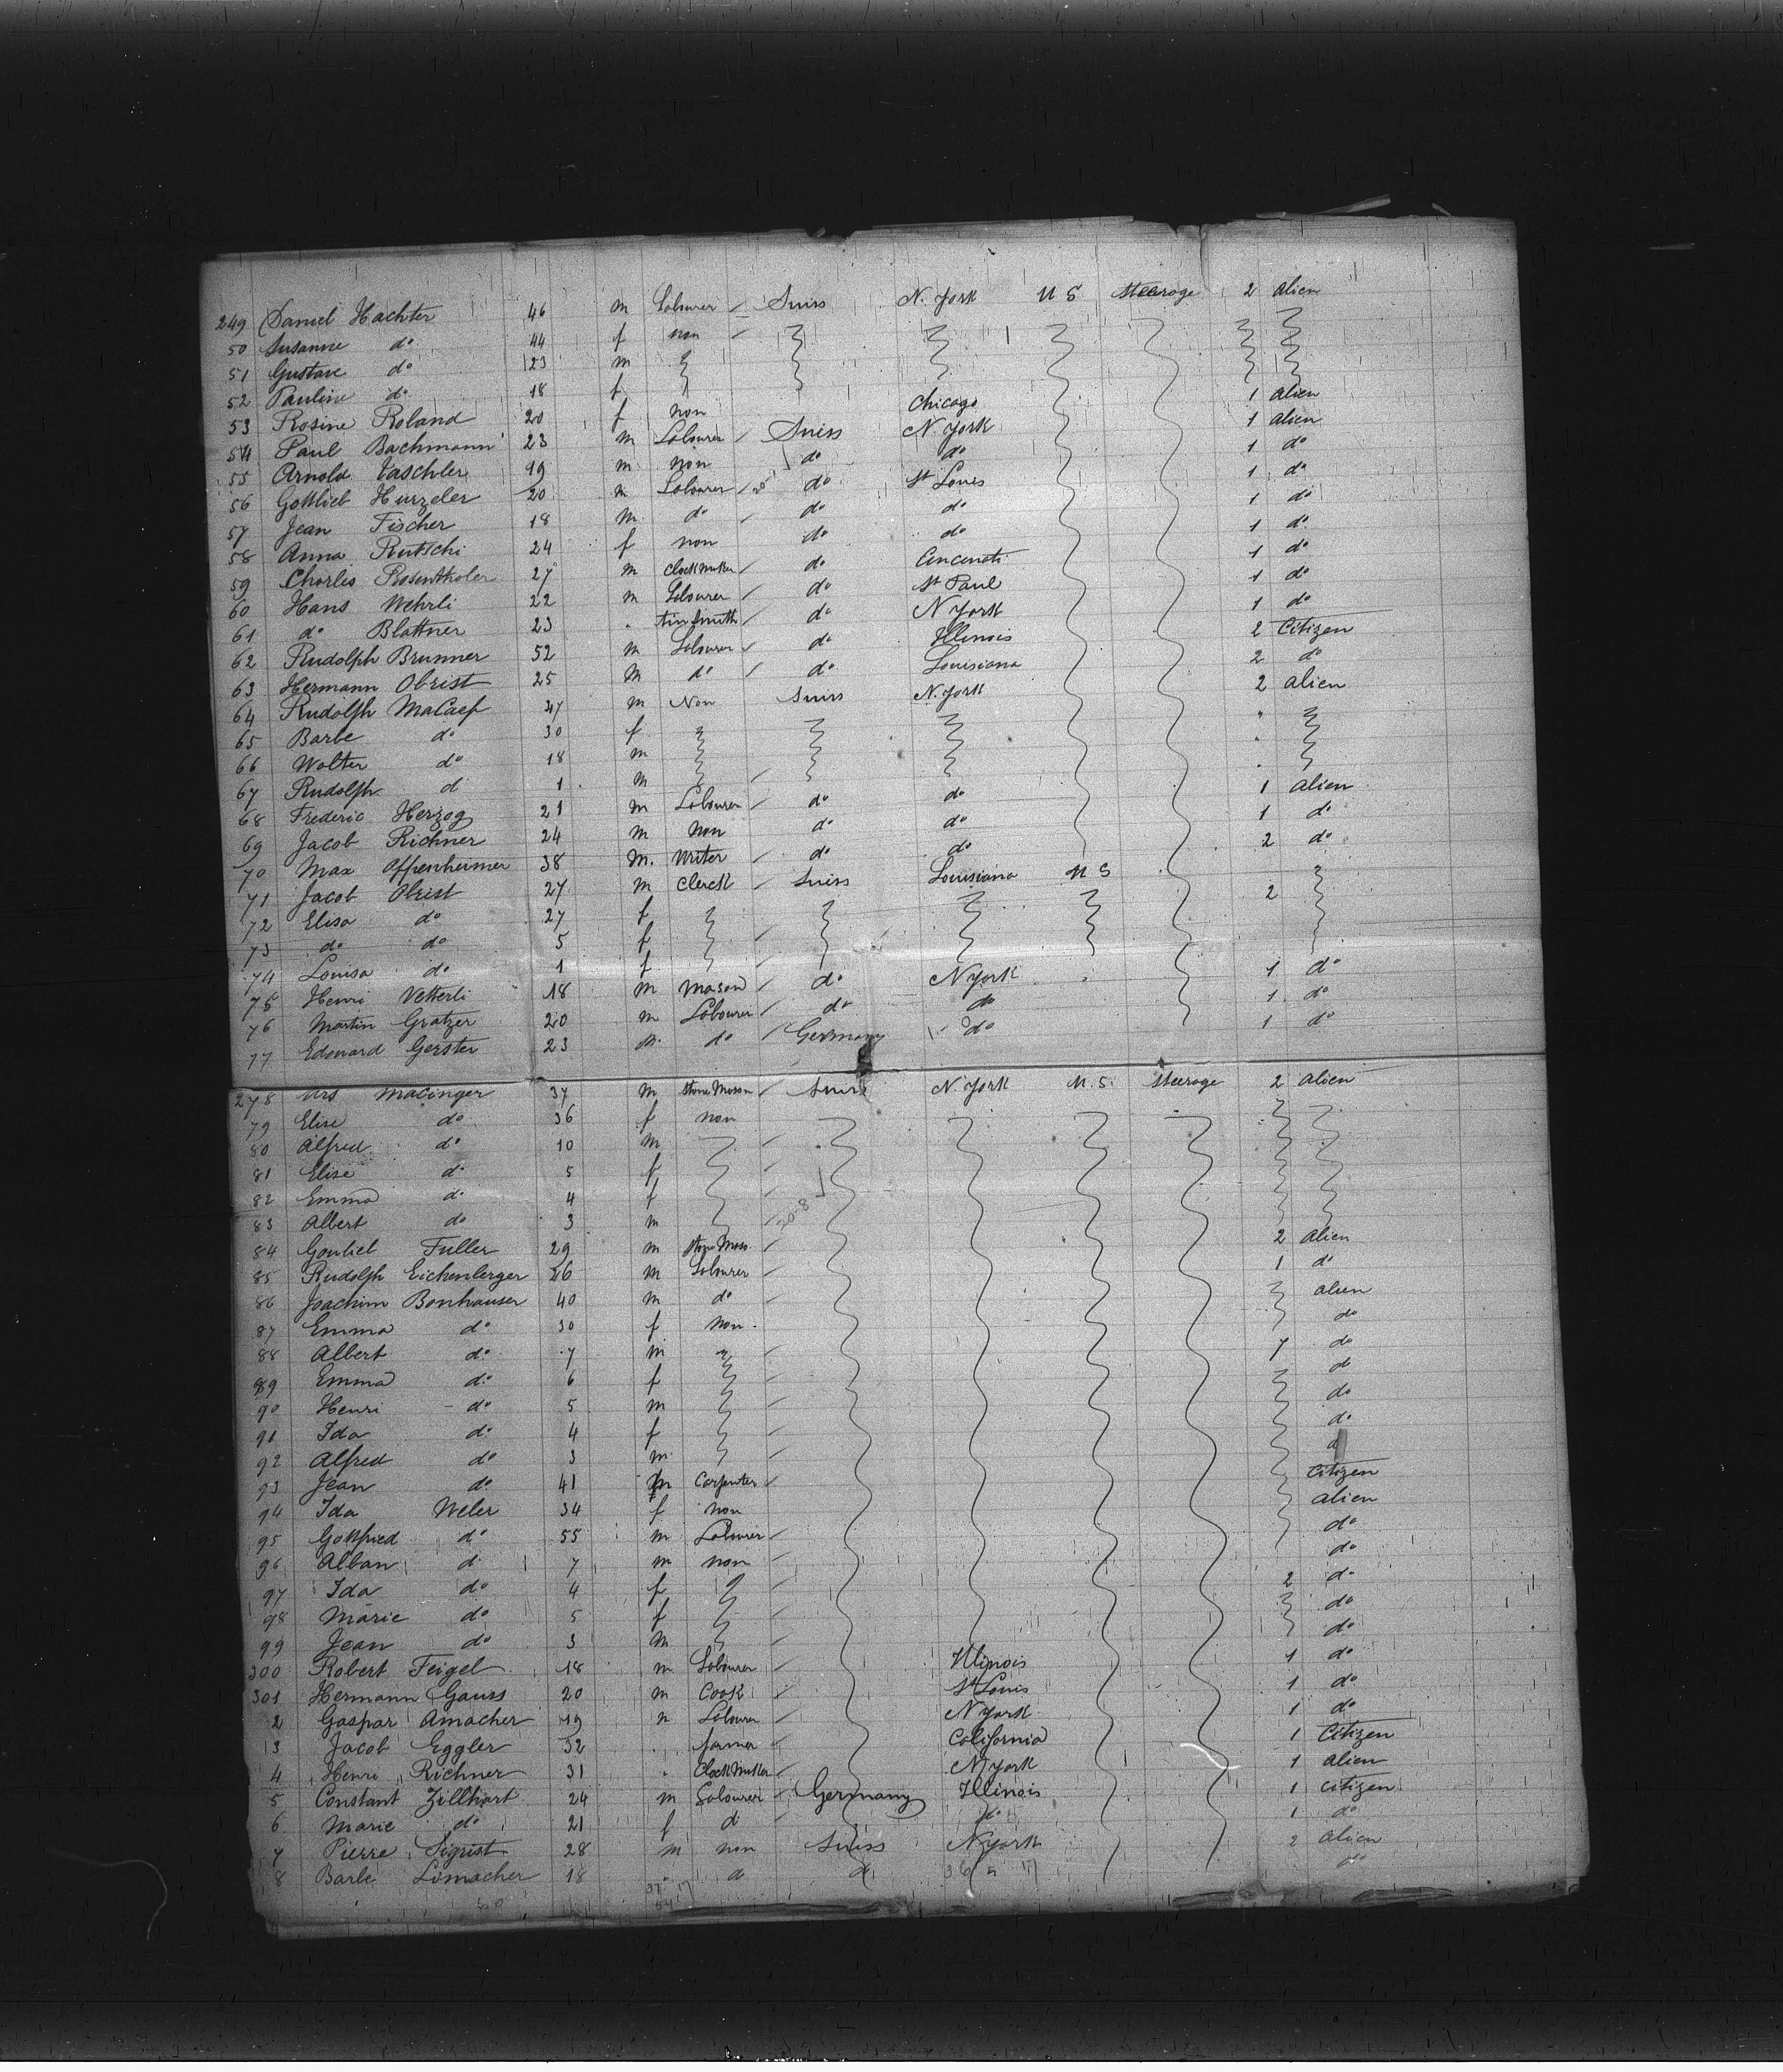 249 Daniel Hachter 46 m Labourer Suiss N. York U S. Steerage 2 alien
50 Susanne do 44 f non
51 Gustave do 23 m
52 Pauline do 18 f
53 Rosine Roland 20 f non Chicago 1 alien
54 Paul Bachmann 23 m Labourer Suiss N. York 1 alien
55 Arnold 19 m non do do 1 do
56 Gottlieb Hurzeler 20 m Labourer do St Louis 1 do
57 Jean Fischer 18 m do do do 1 do
58 Anna Rutschi 24 f non do do 1 do
59 Charles Rosenthaler 27 m Clockmaker do Cincinati 1 do
60 Hans Wehrli 22 m Labourer do St Paul 1 do
61 do Blattner 23 " tinsmith do N York 1 do
62 Rudolph Brunner 52 m Labourer do Illinois 2 Citizen
63 Hermann Obrist 25 m do do Louisiana 2 do
64 Rudolph 47 m Non Suiss N. York 2 alien
65 Barbe do 30 f "
66 Walter do 18 m "
67 Rudolph d 1 m
68 Frederic Herzog 21 m Labourer do do 1 alien
69 Jacob Richner 24 m non do do 1 do
70 Max Offenheimer 38 m. writer do do 2 do
71 Jacob Obrist 27 m Clerck Suiss Louisiana U S
72 Elisa do 27 f 2
73 do do 5 f
74 Louisa do 1 f
75 Henri Vetterli 18 m mason do N York 1 do
76 Martin Gratzer 20 m Labourer do do 1 do
77 Edouard Gerster 23 m. do Germany do 1 do
278 Urs Macinger 37 m stone Mason Suiss N. York U. S. Steerage 2 alien
79 Elise do 36 f non
80 Alfred do 10 m
81 Elise do 5 f
82 Emma do 4 f
83 Albert do 3 m
84 Fuller 29 m stone Maso 2 alien
85 Rudolph Eichenberger 26 m Labourer 1 do
86 Joachim Bonhauser 40 m do alien
87 Emma do 30 f non do
88 Albert do 7 m 7 do
89 Emma do 6 f do
90 Henri do 5 m do
91 Ida do 4 f do
92 Alfred do 3 m d
93 Jean do 41 m Carpenter Citizen
94 Ida Weler 34 f non alien
95 Gottfried do 55 m Labourer do
96 Alban d 7 m non do
97 Ida do 4 f 2 do
98 Marie do 5 f do
99 Jean do 3 m do
300 Robert Feigel 18 m Labourer Illinois 1 do
301 Hermann Gauss 20 m Cook St Louis 1 do
2 Gaspar Amacher 19 m Labourer N York 1 do
3 Jacob Eggler 32 " farmer California 1 Citizen
4 Henri Richner 31 " Clockmaker N York 1 alien
5 Constant Zillhart 24 m Labourer Germany Illinois 1 citizen
6 Marie do 21 f d do 1 do
7 Pierre Sigrist 28 m non Suiss N York 2 alien
8 Barbe Limacher 18 d d do